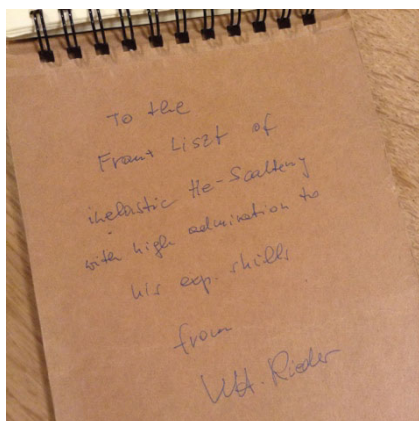 To the
Franz Liszt of
inelastic He-Scattering
with high admiration to
his exp. skills
from
Rieder